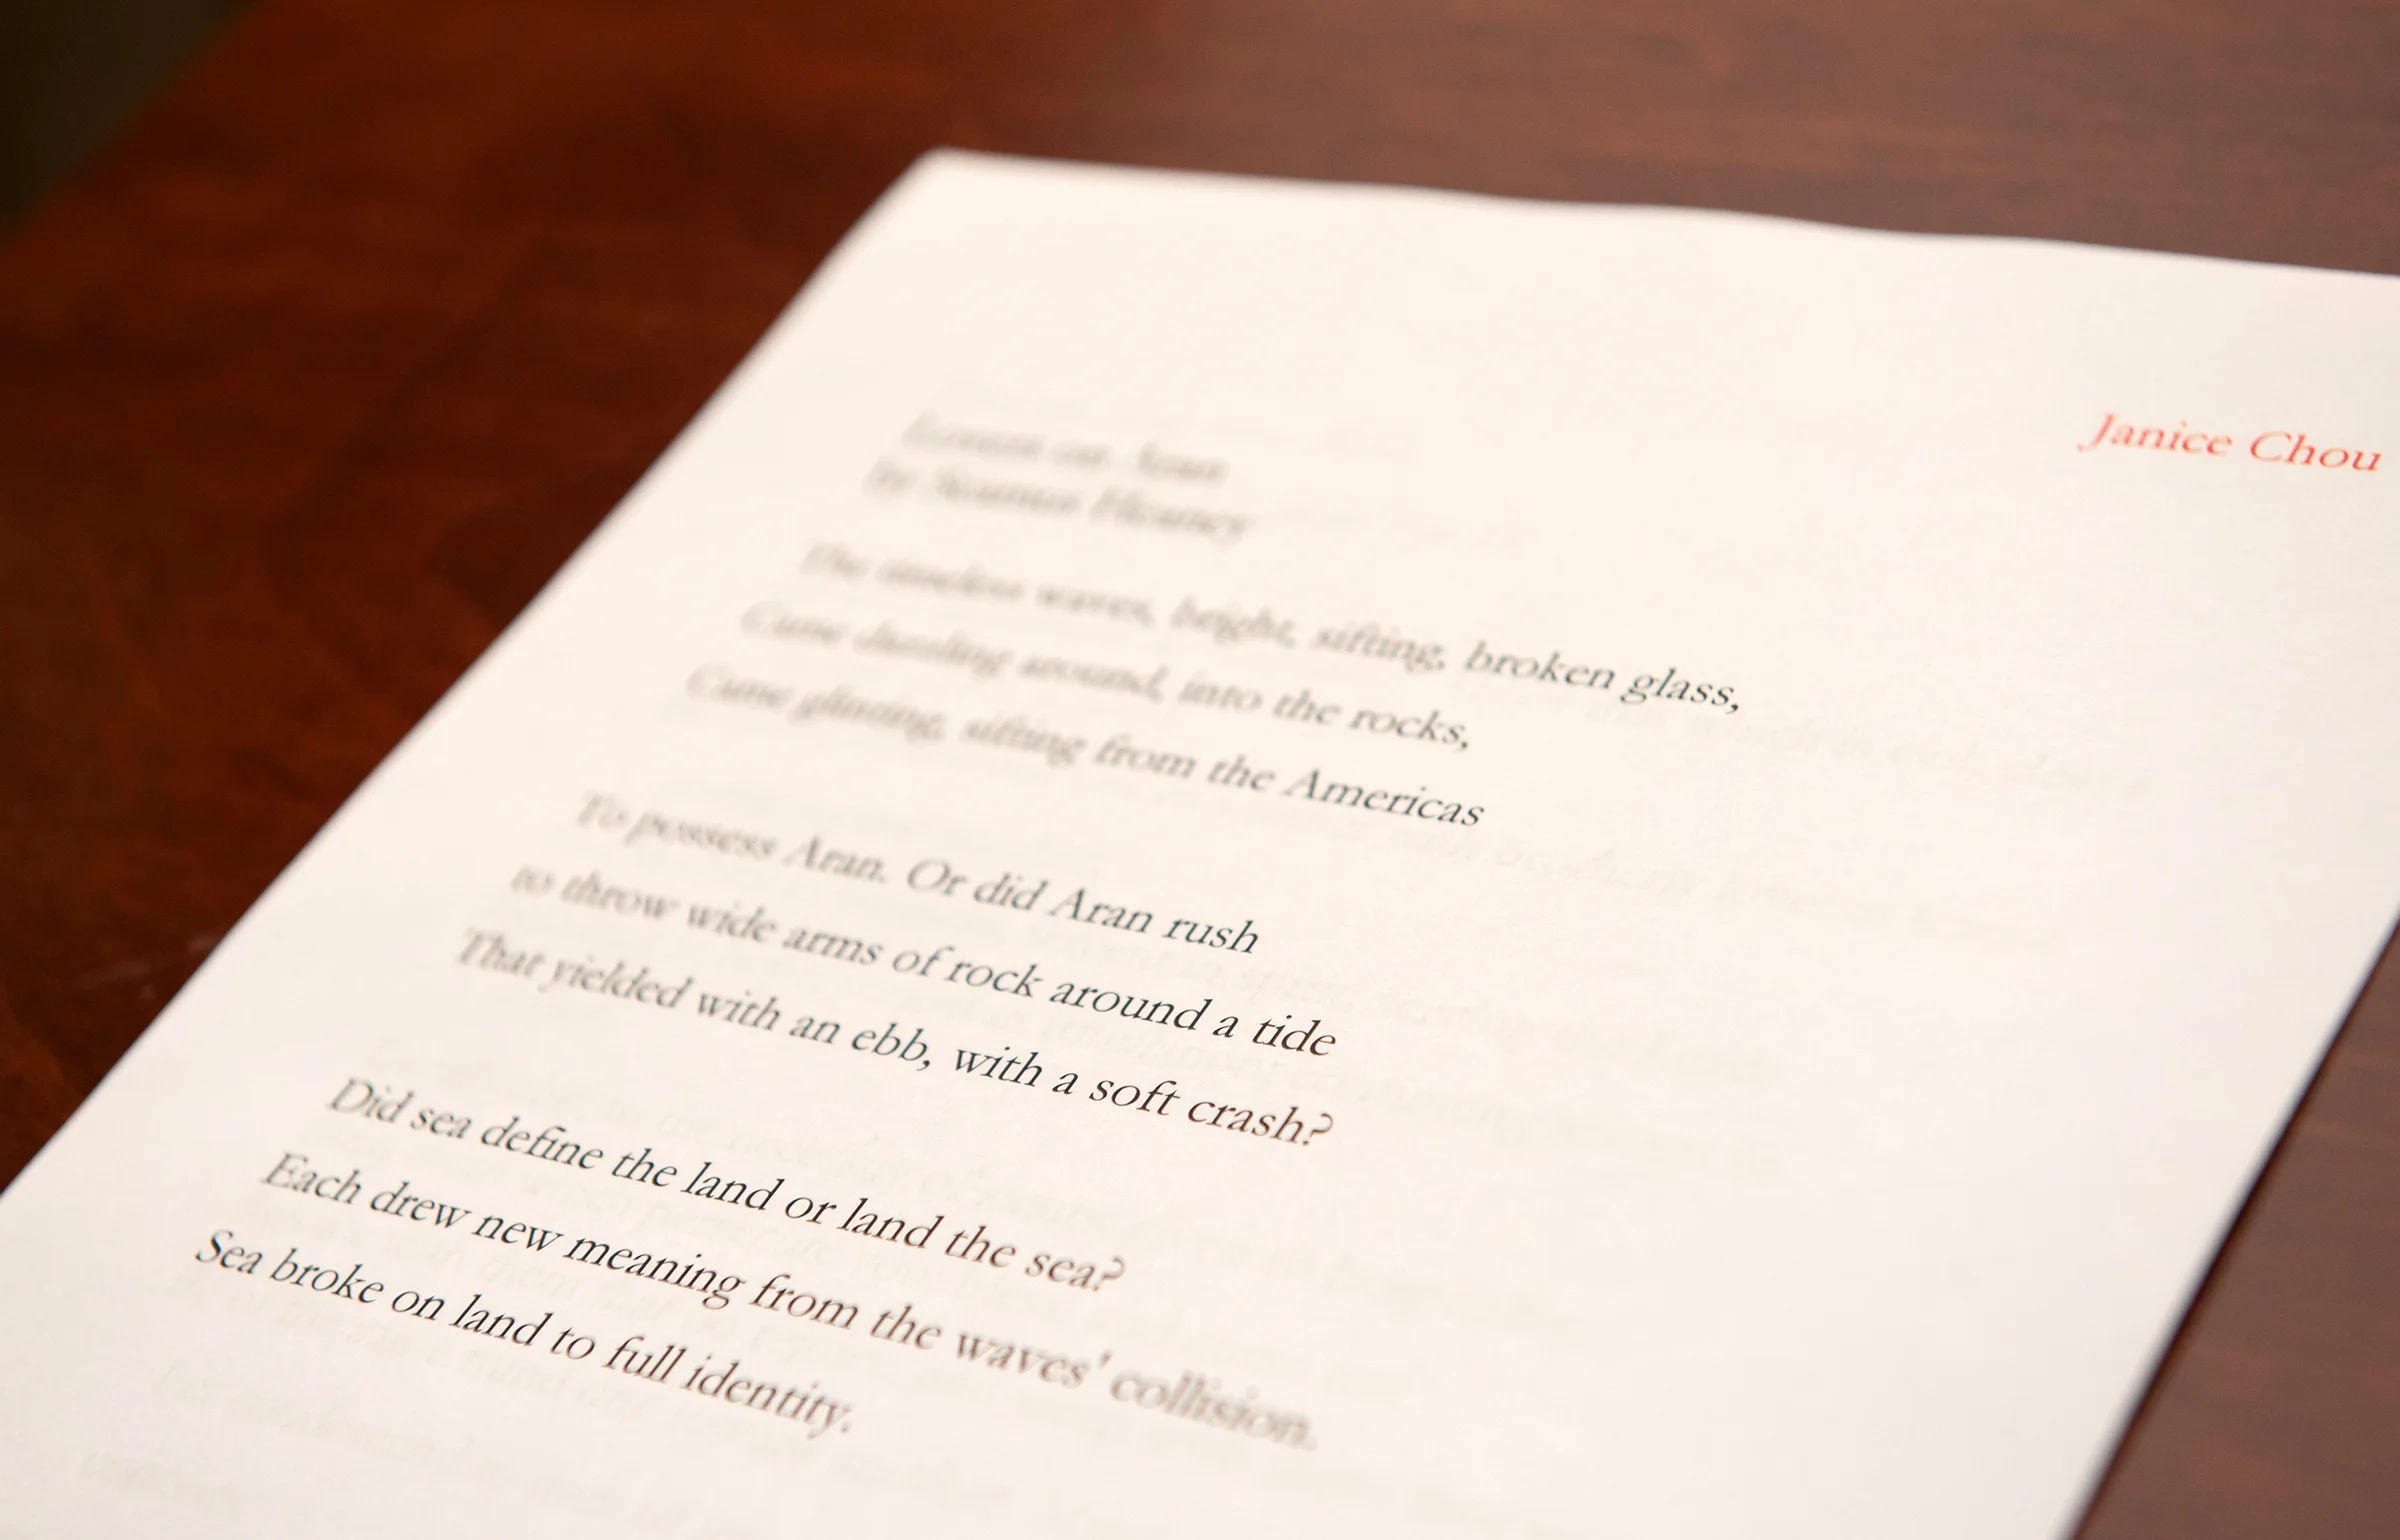 Janice Chou
Lovers on Aran
by Seamus Heaney
The timeless waves, bright, sifting, broken glass,
Came dazzling around, into the rocks,
Came glinting, sifting from the Americas
To possess Aran. Or did Aran rush
to throw wide arms of rock around a tide
That yielded with an ebb, with a soft crash?
Did sea define the land or land the sea?
Each drew new meaning from the waves' collision.
Sea broke on land to full identity.